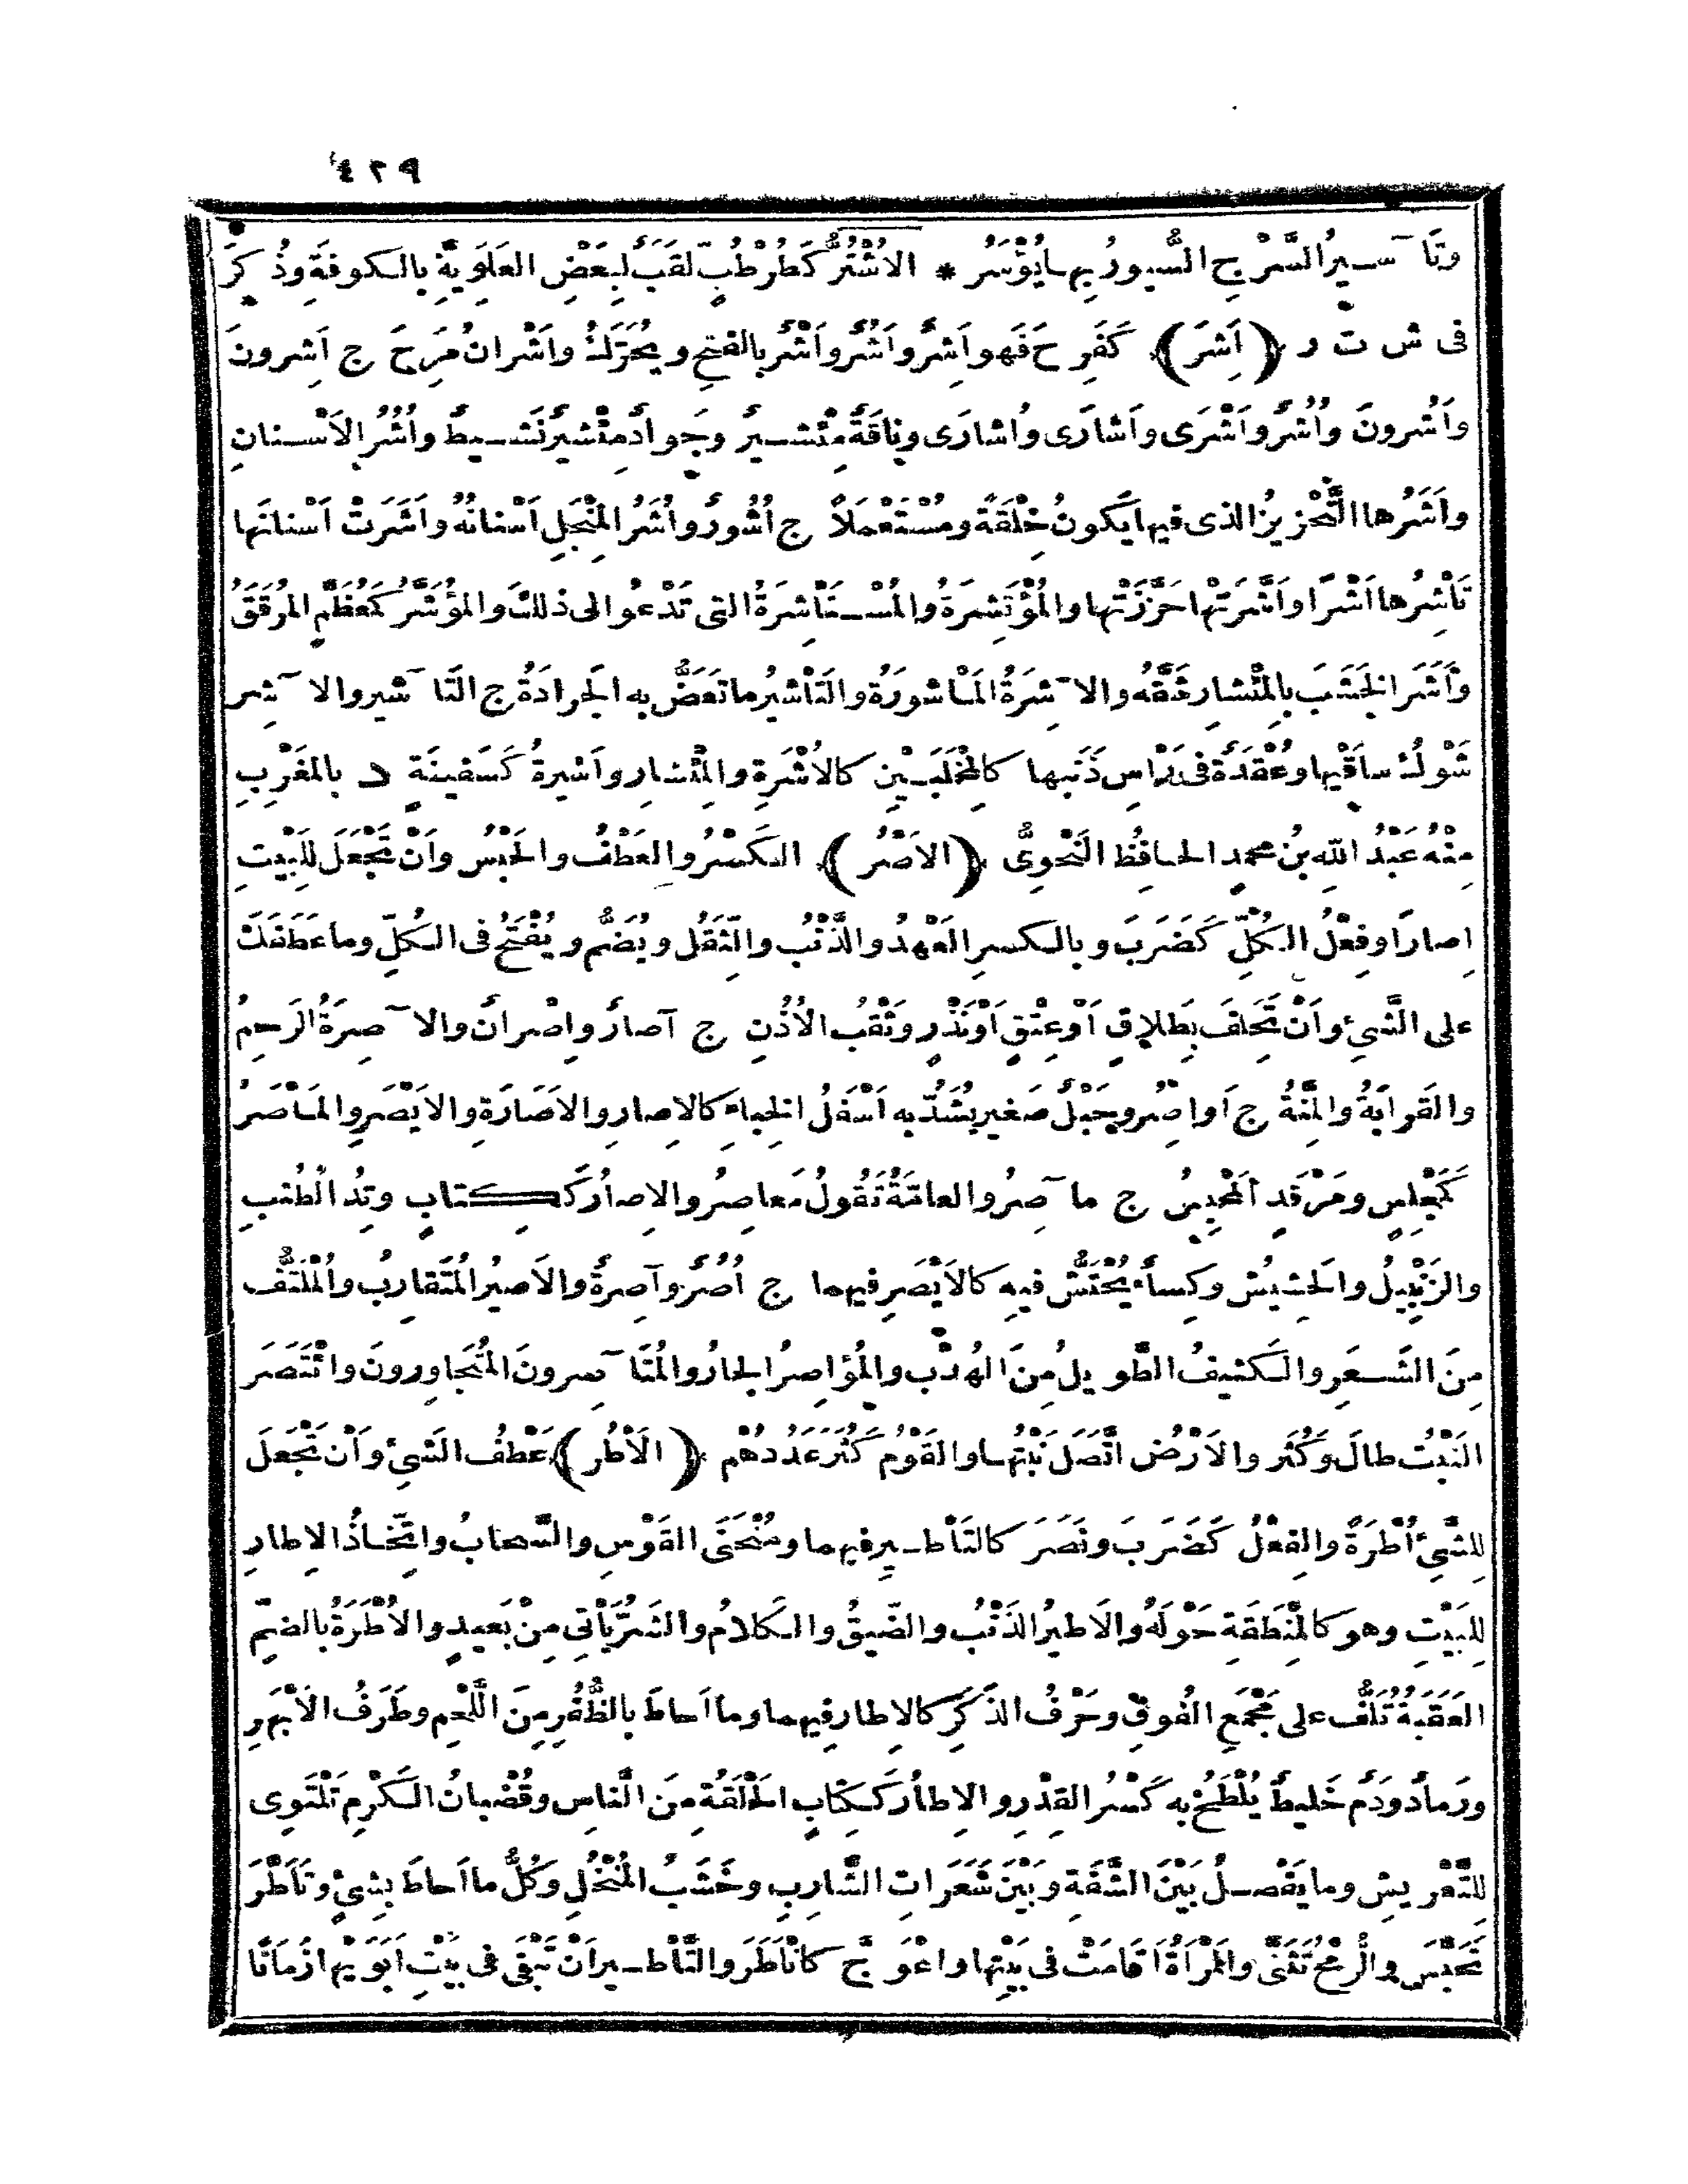 ٤٢٩
وتَآسيرُ السَّرْجِ السُّيورُ بها يُؤْسَرُ * الاُشْتُرُّ كَطُرْطُبٍّ لَقَبٌ لِبَعْضِ العَلَوِيَّةِ بالكوفَةِ وذُكِرَ
فى ش ت ر ﴿أَشِرَ﴾ كَفَرِحَ فَهو أَشِرٌ وأَشُرٌ وأَشْرٌ بالفتحِ ويُحَرَّكُ وأَشْرانُ مَرِحَ ج أَشِرونَ
وأَشُرونَ وأُشُرٌ وأَشْرَى وأَشَارَى وأُشارَى وناقَةٌ مِئْشيرٌ وجَوادٌ مِئْشيرٌ نَشيطٌ وأُشُرُ الأَسْنانِ
وأُشَرُها التَّحْزيزُ الذى فيها يكونُ خِلْقَةً ومُسْتَعْمَلًا ج أُشُورٌ وأُشَرُ المِنْجَلِ أَسْنانُهُ وأَشَرَتْ أَسْنانَها
تَأْشِرُها أَشْرًا وأَشَّرَتْها حَزَّزَتْها والمُؤْتَشِرَةُ والمُسْتَأْشِرَةُ التى تَدْعُو الى ذلكَ والمُؤَشَّرُ كَمُعَظَّمٍ المُرَقَّقُ
وأَشَرَ الخَشَبَ بالمِئْشارِ شَقَّهُ والآشِرَةُ المَأْشورَةُ والتَأْشيرُ ما تَعَضُّ به الجَرادَةُ ج التَآشير والآشِر
شَوْكُ ساقَيْها وعُقْدَةٌ فى رَأْسِ ذَنَبِها كالمِخْلَبَيْنِ كالأُشْرَةِ والمِئْشارِ وأَشيرةُ كَسَفينَةٍ د بالمغَرْبِ
مِنْهُ عَبْدُ اللّهِ بنُ محمدٍ الحافِظُ النَحْوِىُّ ﴿الأَصْرُ﴾ الكَسْرُ والعَطْفُ والحَبْسُ وأَنْ تَجْعَلَ للبَيْتِ
إصارًا وفِعْلُ الكُلِّ كَضَرَبَ وبالكسرِ العَهْدُ والذَّنْبُ والثِّقَلُ ويُضَمُّ ويُفْتَحُ فى الكُلِّ وما عَطَفَكَ
على الشَّىْءِ وأَنْ تَحْلِفَ بِطَلاقٍ أَوْ عِتْقٍ أَوْ نَذْرٍ وثَقْبُ الأُذُنِ ج آصارٌ وإصْرانٌ والآصِرَةُ الرَحِمُ
والقَرابَةُ والمِنَّةُ ج أَواصِرُ وحَبْلٌ صَغير يُشَدُّ به أَسْفَلُ الخِباءِ كالإصارِ والأَصَارَةِ والأَيْصَرِ والمَأْصَرُ
كَمَجْلِسٍ ومَرْقَدٍ المَحْبِسُ ج مآصِرُ والعامَّةُ تَقُولُ مَعاصِرُ والإصارُ كَكِتابٍ وتِدُ الطُنُبِ
والزَّنْبيلُ والحَشيشُ وكِساءٌ يُحْتَشُّ فيهِ كالأَيْصَرِ فيهما ج أُصُرٌ وآصِرَةٌ والأَصيرُ المُتَقارِبُ والمُلْتَفُّ
مِنَ الشَّعَرِ والكَثيفُ الطَّويلُ مِنَ الهُدْبِ والمُؤاصِرُ الجارُ والمُتَآصِرونَ المُتَجاورونَ وائْتَصَرَ
النَبْتُ طالَ وكَثُرَ والأَرْضُ اتَّصَلَ نَبْتُها والقَوْمُ كَثُرَ عَدَدُهُم ﴿الأَطْر﴾ عَطْفُ الشَىْءِ وأَنْ تَجْعَلَ
للشَّىْءِ أُطْرَةً والفِعْلُ كَضَرَبَ ونَصَرَ كالتَأْطيرِ فيهما ومُنْحَنَى القَوْسِ والسَّحابُ واتِّخاذُ الإطارِ
للبَيْتِ وهو كالمِنْطَقَةِ حَوْلَهُ والأَطيرُ الذَنْبُ والضّيقُ والكَلامُ والشَرُّ يَأْتى مِنْ بَعيدٍ والأُطْرَةُ بالضمِّ
العَقَبَةُ تُلَفُّ على مَجْمَعِ الفُوقِ وحَرْفُ الذَكَرِ كالإطارِ فيهما وما أَحاطَ بالظُّفُرِ مِنَ اللَّحْمِ وطَرَفُ الأَبْهَرِ
ورَمادٌ ودَمٌ خَليطٌ يُلْطَخُ به كَسْرُ القِدْرِ والإطارُ كَكِتابٍ الحَلْقَةُ مِنَ النَّاسِ وقُضْبانُ الكَرْمِ تَلْتَوِى
للتَّعْريشِ وما يَفْصِلُ بَيْنَ الشَّفَةِ وبَيْنَ شَعَرَاتِ الشَّارِبِ وخَشَبُ المُنْخُلِ وكُلُّ ما أَحاطَ بشَىْءٍ وتَأَطَّرَ
تَحَبَّسَ والرُّمْحُ تَثَنَّى والمَرْأَةُ أَقَامَتْ فى بَيْتِها واعْوَجَّ كانْأَطَرَ والتَّأْطيرُ أَنْ تَبْقَى فى بَيْتِ أَبَوَيْها زَمانًا